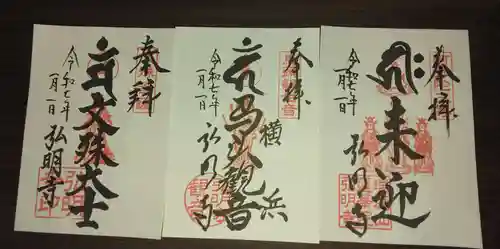 奉拝
文殊大士
令和七年
一月一日
弘明寺
奉拝
横浜
馬頭観音
令和七年
一月一日
弘明寺
奉拝
来迎
令和七年
一月一日
弘明寺